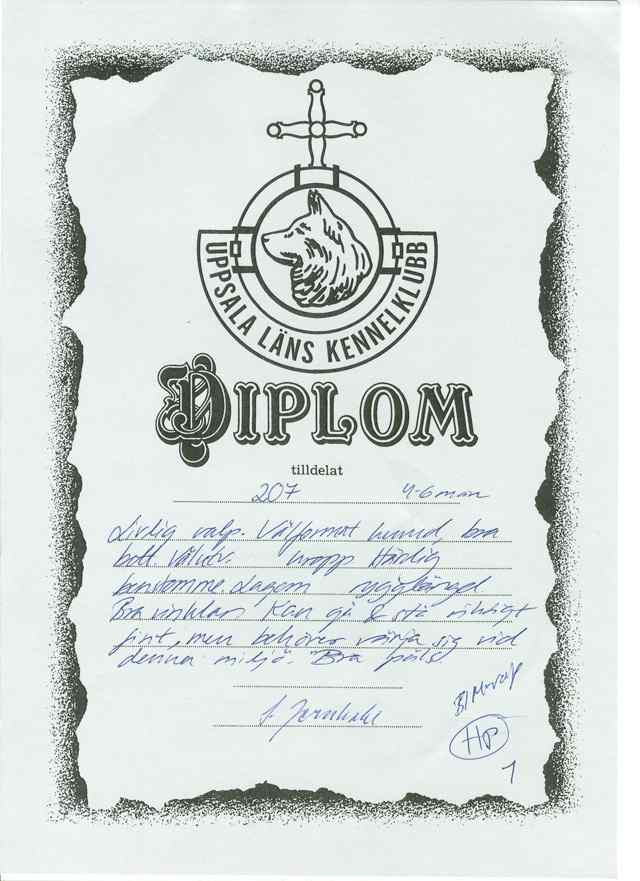 UPPSALA LÄNS KENNELKLUBB
DIPLOM
tilldelat
207 4-6 mån
Livlig valp. Välformat huvud, bra
bett. Välutv. kropp Härdig
benstomme. Lagom rygglängd
Bra vinklar Kan gå & stå riktigt
fint, men behöver vänja sig vid
denna miljö. Bra päls.
HP
1